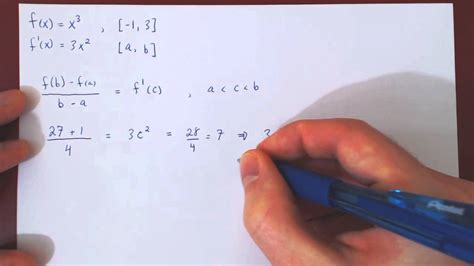 f(x) = x³ , [-1, 3]
f'(x) = 3x² [a, b]
f(b) - f(a) / b - a = f'(c) , a < c < b
27 + 1 / 4 = 3c² = 28 / 4 = 7 ⇒ 3
Pentel